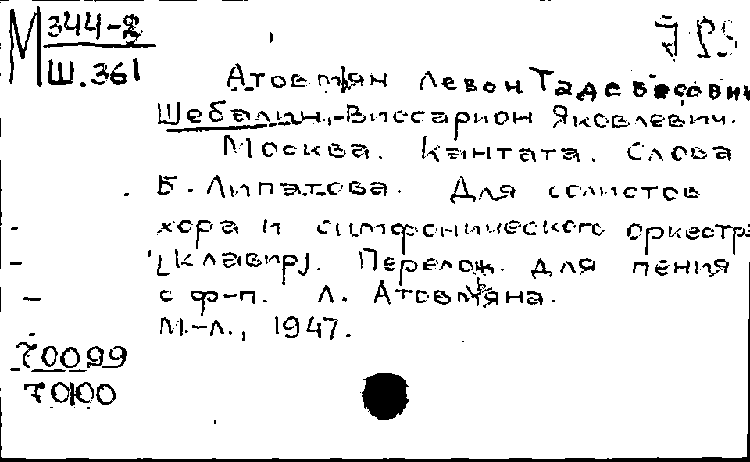 М 344-8
Ш.361
Атовмьян Левон Тадевосович
Шебалин, Виссарион Яковлевич.
Москва. Кантата. Слова
Б. Липатова. Для солистов
хора и симфонического оркестра
[клавир]. Перелож. для пения
с ф-п. Л. Атовмьяна.
М.-Л., 1947.
70099
70100